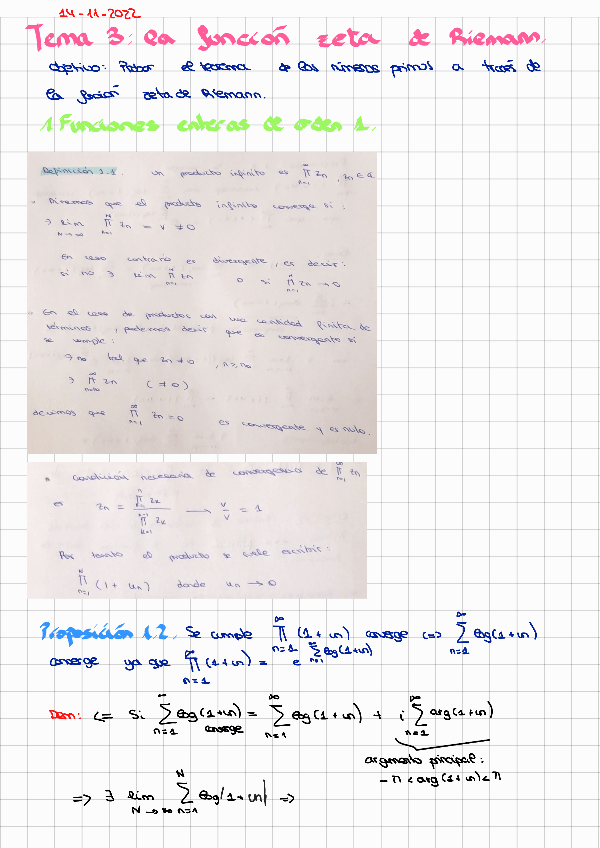 14-11-2022
Tema 3: La función zeta de Riemann.
Objetivo: Probar el teorema de los números primos a través de
la función zeta de Riemann.
1. Funciones enteras de orden 1.
Definición 1.1. Un producto infinito es ∏_{n=1}^∞ Zn, Zn ∈ ℂ
Diremos que el producto infinito converge si:
∃ lim_{N→∞} ∏_{n=1}^N Zn = V ≠ 0
En caso contrario es divergente, es decir:
si no ∃ lim ∏_{n=1}^N Zn o si ∏_{n=1}^N Zn → 0
En el caso de productos con una cantidad finita de
términos, podemos decir que es convergente si
se cumple:
∃ n₀ tal que Zn ≠ 0, n ≥ n₀
∃ ∏^∞ Zn (≠ 0)
decimos que ∏_{n=1}^∞ Zn = 0 es convergente y es nulo.
Condición necesaria de convergencia de ∏_{n=1}^∞ Zn
es Zn = ∏_{k=1}^n Zk / ∏_{k=1}^{n-1} Zk → V/V = 1
Por tanto el producto se suele escribir:
∏_{n=1}^N (1 + un) donde un → 0
Proposición 1.2. Se cumple ∏_{n=1}^∞ (1 + un) converge <=> ∑_{n=1}^∞ log(1+un)
converge ya que ∏_{n=1}^∞ (1+un) = e^{∑_{n=1}^∞ log(1+un)}
Dem: <= Si ∑_{n=1}^∞ log(1+un) converge = ∑_{n=1}^∞ log(1+un) + i ∑_{n=1}^∞ arg(1+un)
argumento principal:
-π < arg(1+un) < π
=> ∃ lim_{N→∞} ∑_{n=1}^N log|1+un| =>